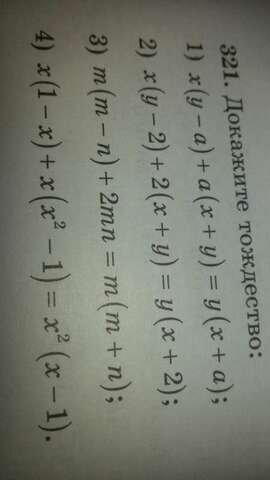 321. Докажите тождество:
1) x(y − a) + a(x + y) = y(x + a);
2) x(y − 2) + 2(x + y) = y(x + 2);
3) m(m − n) + 2mn = m(m + n);
4) x(1 − x) + x(x² − 1) = x²(x − 1).